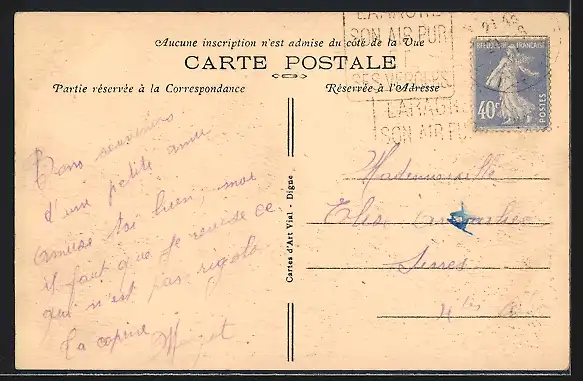 LARAGNE
SON AIR PUR
SES VERGERS
LARAGNE
SON AIR PUR
Aucune inscription n'est admise du côté de la Vue
CARTE POSTALE
Partie réservée à la Correspondance
Réservée à l'Adresse
REPUBLIQUE FRANÇAISE
40c
POSTES
Cartes d'Art Vial - Digne
Bons souvenirs
d'une petite amie
amuse toi bien, moi
il faut que je révise ce
qui n'est pas rigolo
Ta copine
Mademoiselle
Elise
Serres
Htes